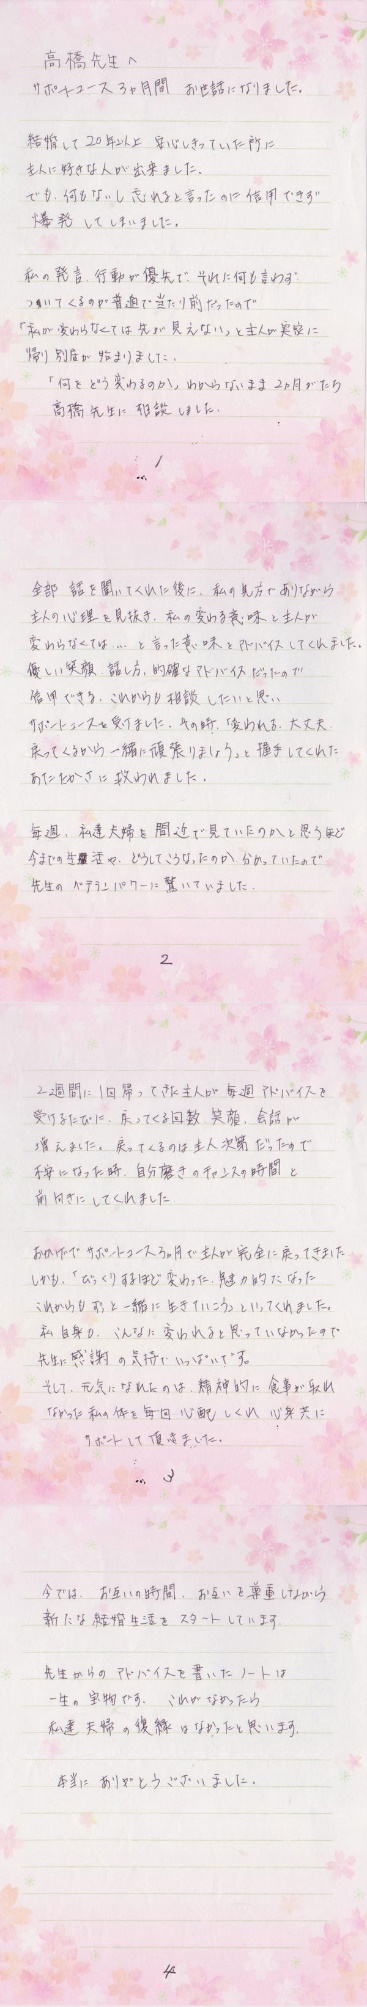 高橋先生へ
サポートコース3ヶ月間 お世話になりました。
結婚して20年以上 安心しきっていた所に
主人に好きな人が出来ました。
でも、何もないし忘れると言ったのに信用できず
爆発してしまいました。
私の発言、行動が優先で、それに何も言わず
ついてくるのが普通で当たり前だったので
「私が変わらなくては先が見えない」と主人が実家に
帰り別居が始まりました。
「何をどう変わるのか」わからないまま2ヵ月がたち
高橋先生に相談しました。
1
全部 話を聞いてくれた後に、私の見方でありながら
主人の心理を見抜き、私の変わる意味と主人が
変わらなくては… と言った意味とアドバイスしてくれました。
優しい笑顔、話し方、的確なアドバイスだったので
信用できる、これからも相談したいと思い
サポートコースを受けました。その時、「変われる、大丈夫
戻ってくるから一緒に頑張りましょう」と握手してくれた
あたたかさに救われました。
毎週、私達夫婦を間近で見ていたのかと思うほど
今までの生活や、どうしてこうなったのか分かっていたので
先生のベテランパワーに驚いていました。
2
2週間に1回帰ってきた主人が毎週アドバイスを
受けるたびに、戻ってくる回数、笑顔、会話が
増えました。戻ってくるのは主人次第だったので
不安になった時、自分磨きのチャンスの時間と
前向きにしてくれました
おかげでサポートコース3ヵ月で主人が完全に戻ってきました
しかも、「びっくりするほど変わった、魅力的になった
これからもずっと一緒に生きていこう」といってくれました。
私自身も、こんなに変われると思っていなかったので
先生に感謝の気持でいっぱいです。
そして、元気になれたのは、精神的に食事が取れ
なかった私の体を毎回心配しくれ 心身共に
サポートして頂きました。
3
今では、お互いの時間、お互いを尊重しながら
新たな結婚生活をスタートしています
先生からのアドバイスを書いたノートは
一生の宝物です。これがなかったら
私達夫婦の復縁はなかったと思います。
本当にありがとうございました。
4